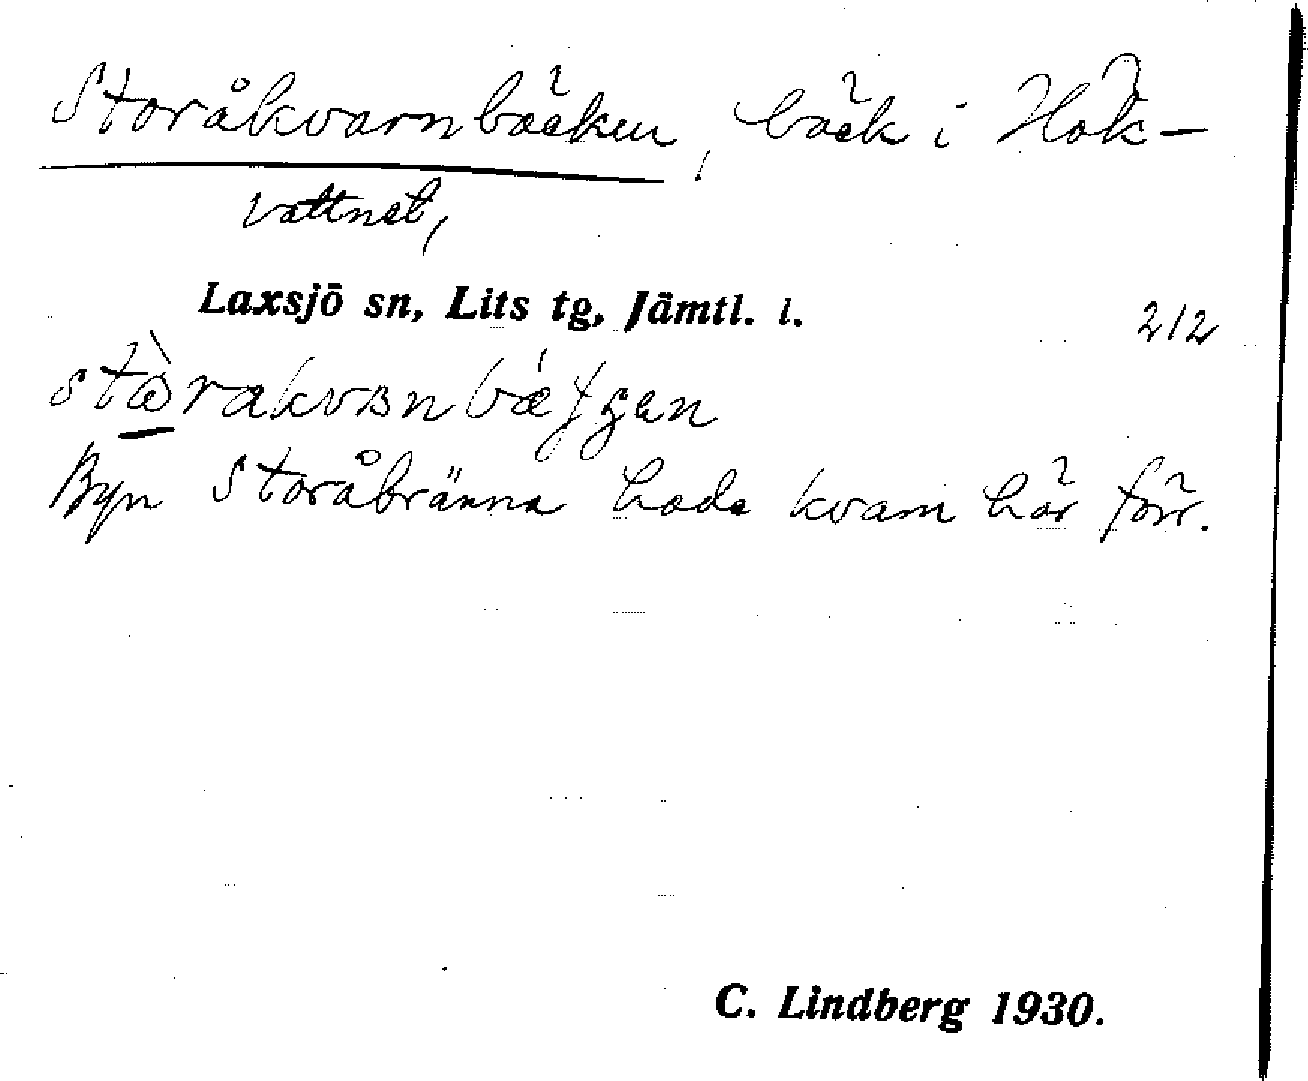 Storåkvarnbäcken, bäck i Håk-
vattnet,
Laxsjö sn, Lits tg, Jämtl. l. 212
Byn Storåbränna hade kvarn här förr.
C. Lindberg 1930.